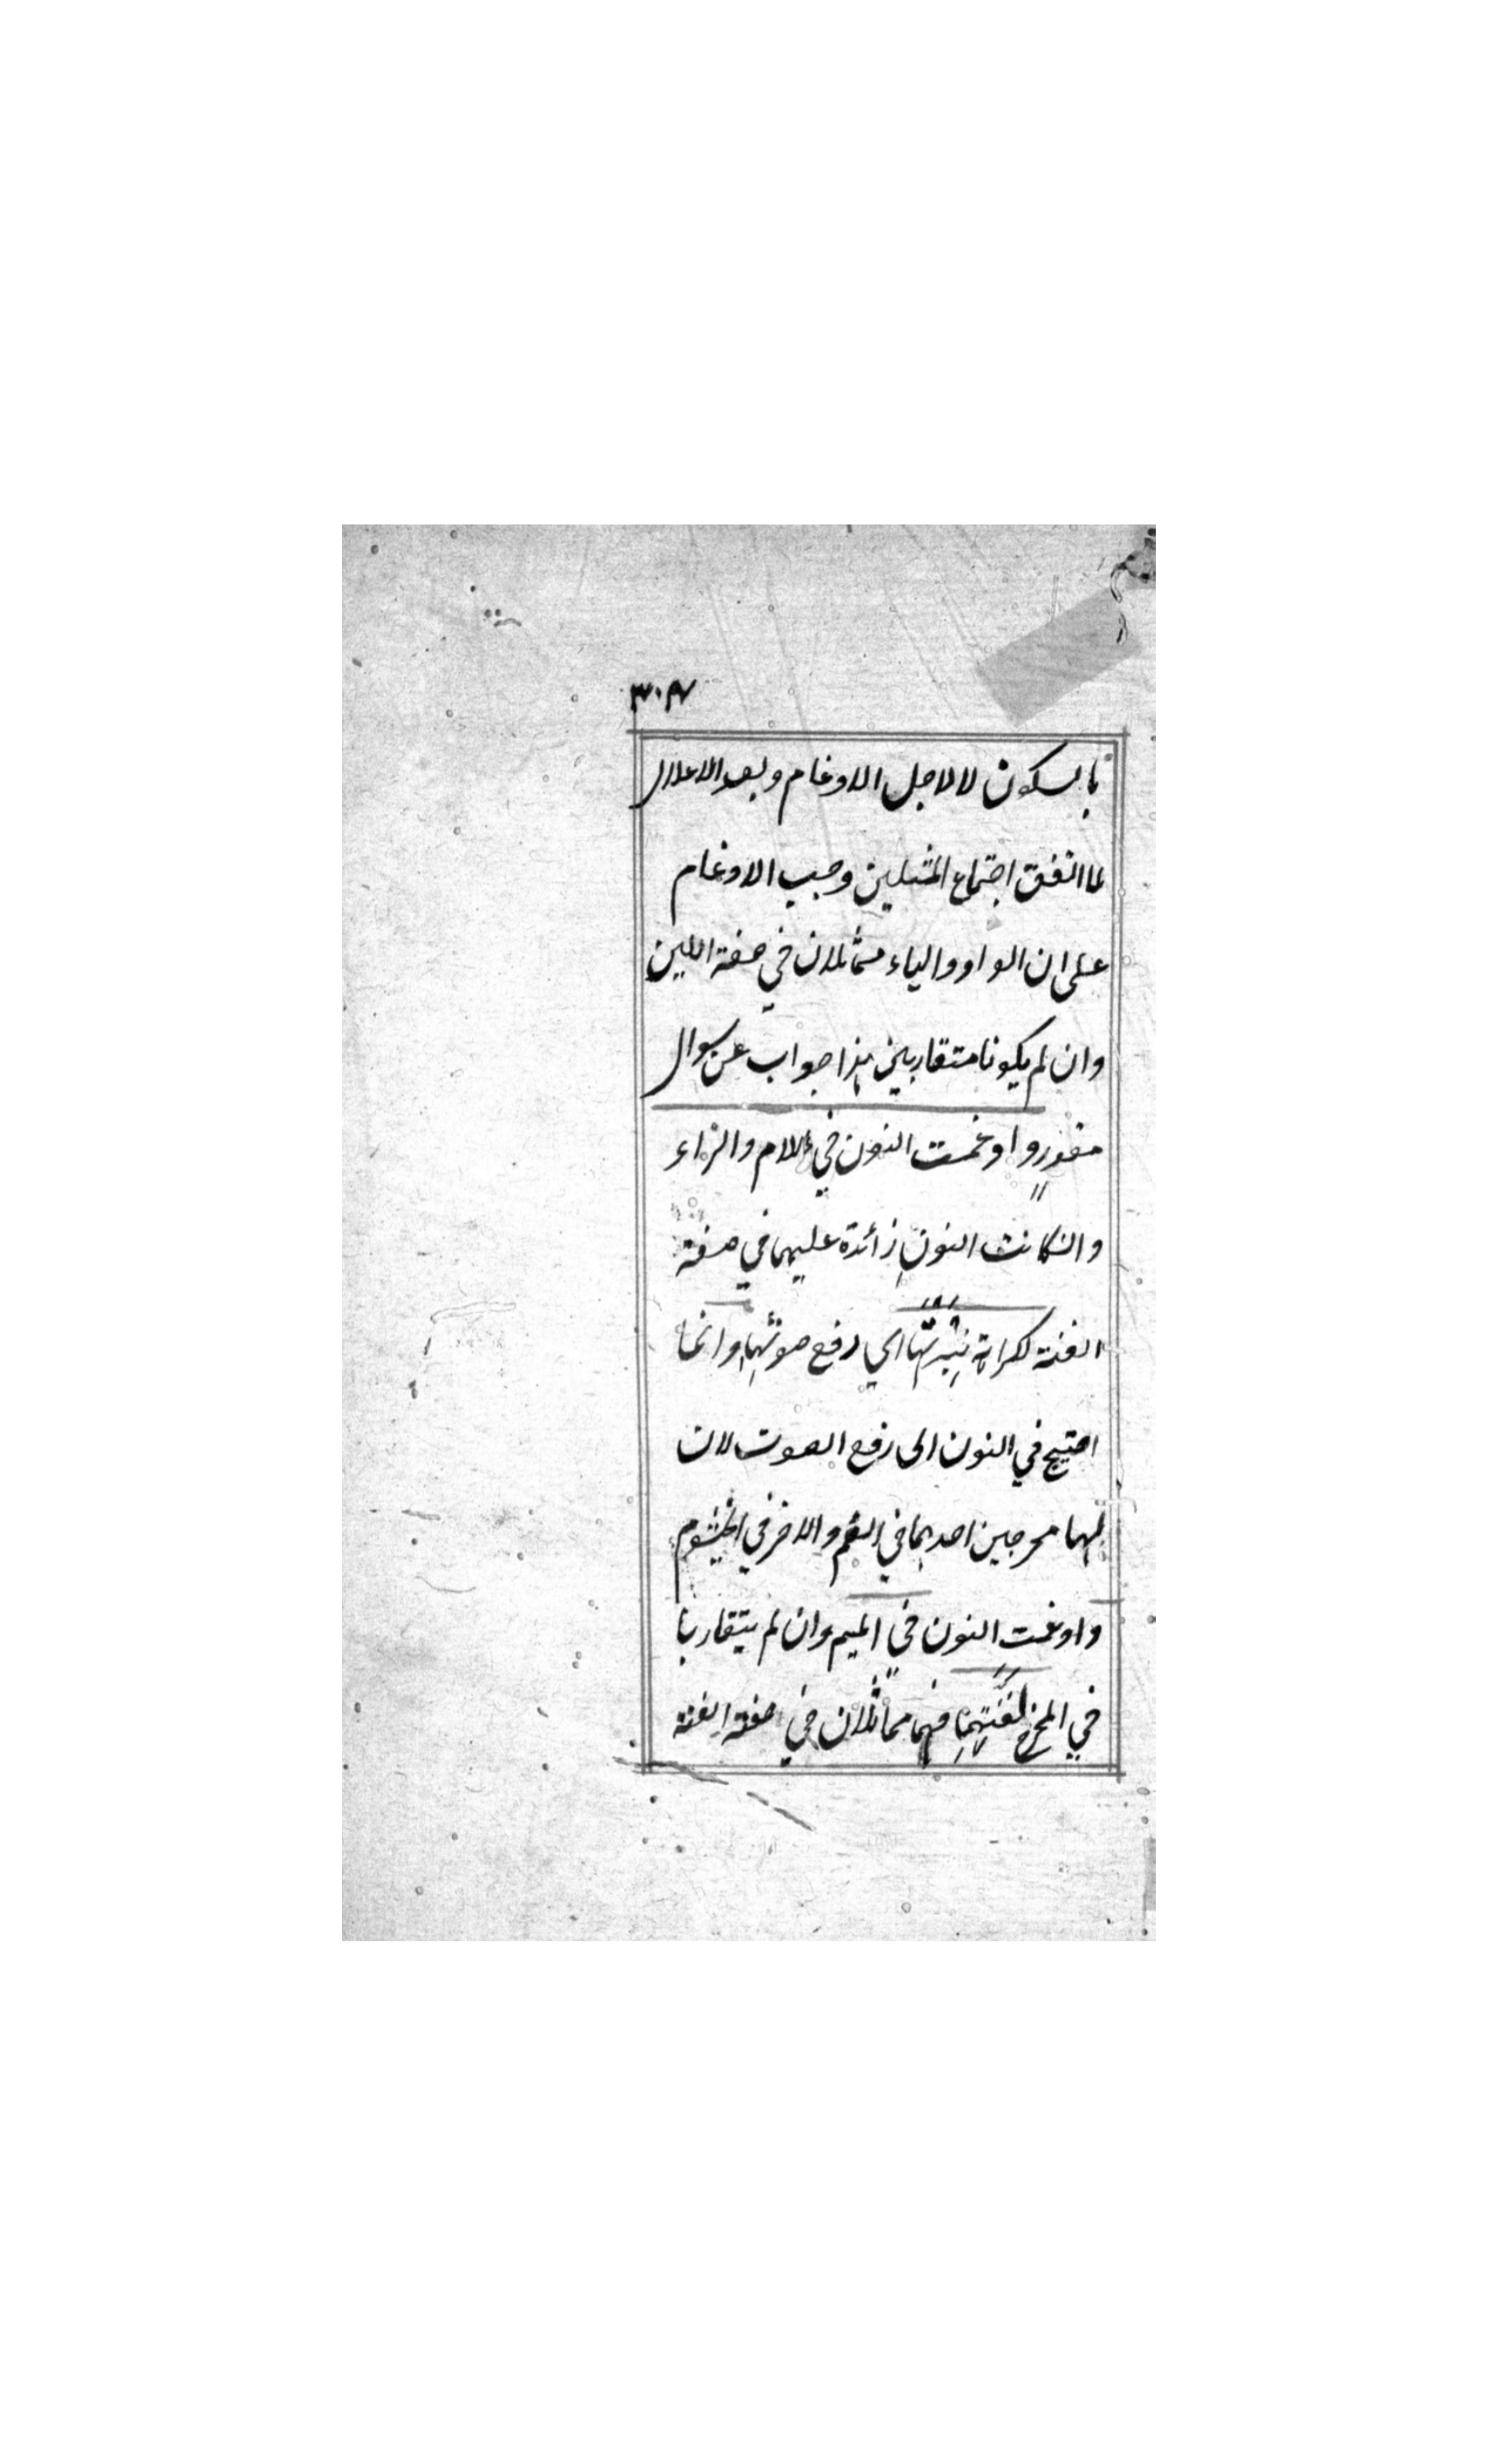 ٣٠٧
بالسكون لا لاجل الادغام وبعد الاعلال
لما اتفق اجتماع المثلين وجب الادغام
على ان الواو والياء متماثلان في صفة اللين
وان لم يكونا متقاربين هذا جواب عن سوال
مقدر وادغمت النون في اللام والراء
وانكانت النون زائدة عليهما في صفة
الغنة لكراهة نبرتها اي رفع صوتها وانما
احتيج في النون الى رفع الصوت لان
لها مخرجين احدهما في الفم والاخر في الخيشوم
وادغمت النون في الميم وان لم يتقاربا
في المخرج لغنتهما فهما مماثلان في صفة الغنة